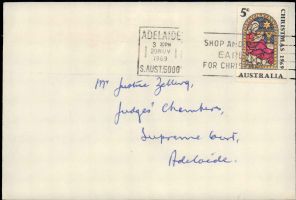 ADELAIDE
3 30PM
20 NOV
1969
S.AUST.5000
SHOP AND
EARLY
FOR CHRIS
5c
CHRISTMAS 1969
AUSTRALIA
Mr Justice Zelling,
Judges' Chambers,
Supreme Court,
Adelaide.